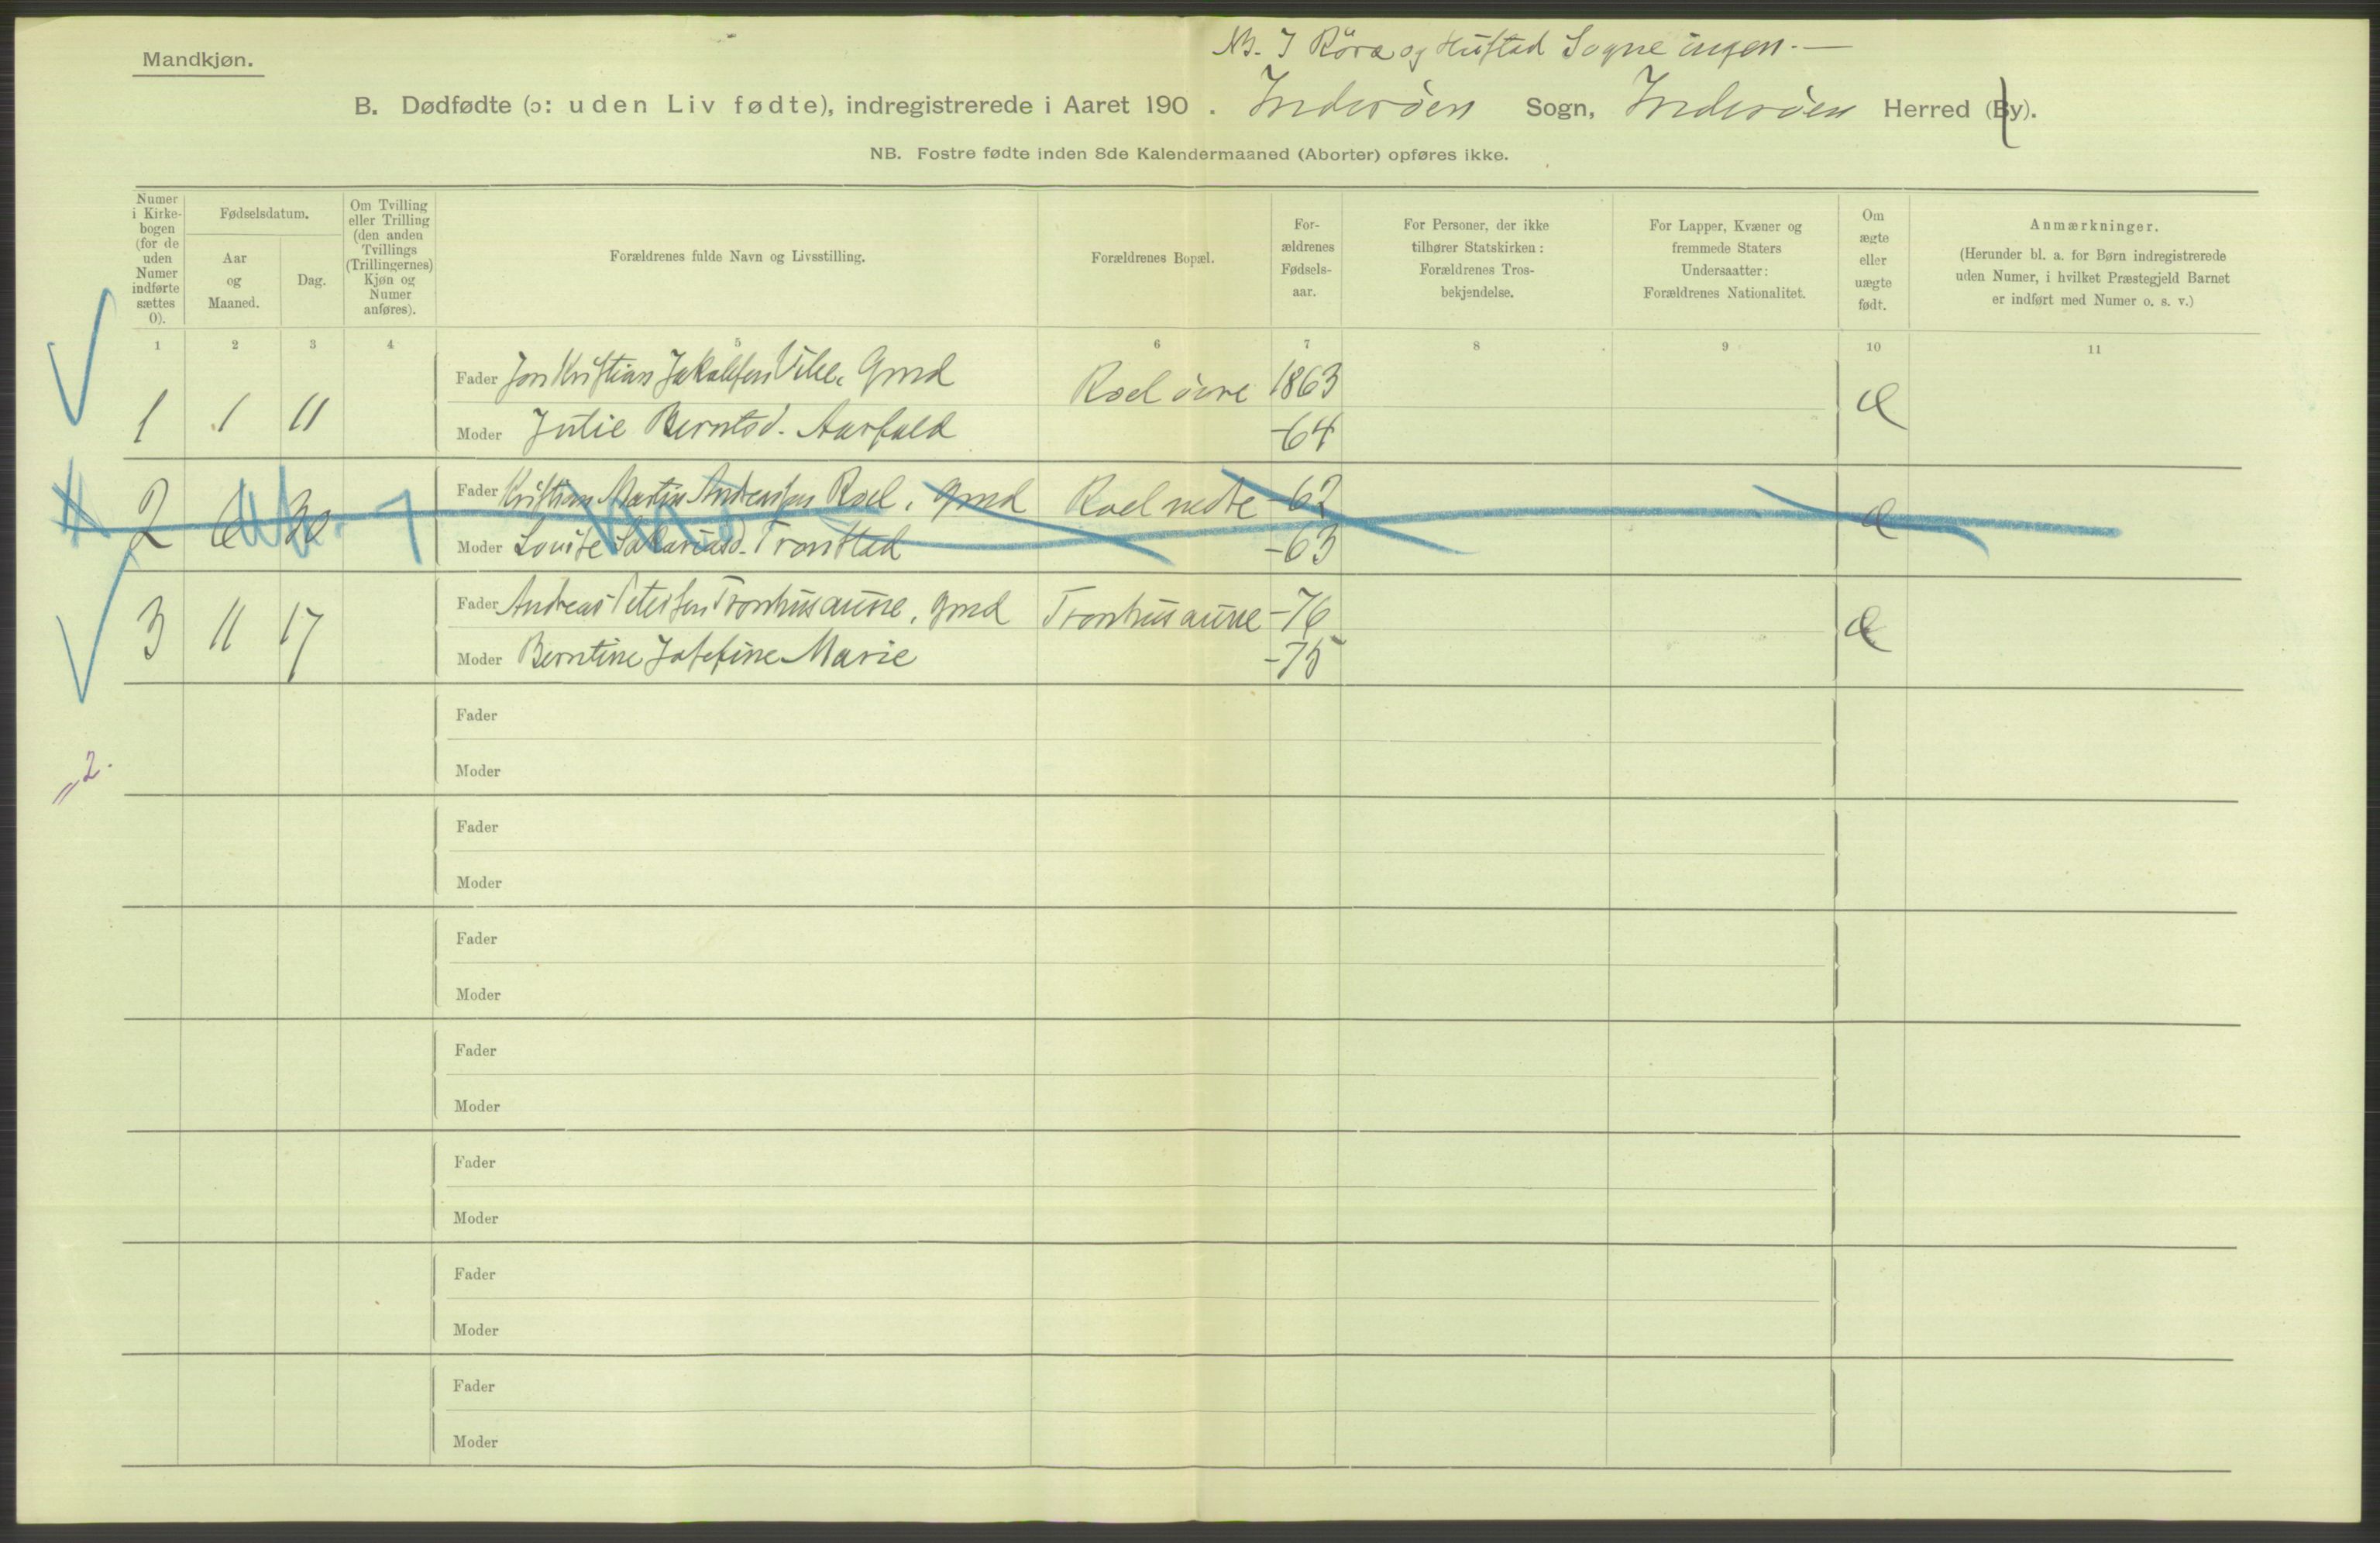 NB. I Röra og Hustad Sogne ingen. —
Mandkjøn.
B. Dødfødte (ɔ: uden Liv fødte), indregistrerede i Aaret 190 . Inderöen Sogn, Inderöen Herred (By).
NB. Fostre fødte inden 8de Kalendermaaned (Aborter) opføres ikke.
Numer i Kirke-bogen (for de uden Numer indførte sættes 0).
Fødselsdatum.
Aar og Maaned.
Dag.
Om Tvilling eller Trilling (den anden Tvillings (Trillingernes) Kjøn og Numer anføres).
Forældrenes fulde Navn og Livsstilling.
Forældrenes Bopæl.
For-ældrenes Fødsels-aar.
For Personer, der ikke tilhører Statskirken: Forældrenes Tros-bekjendelse.
For Lapper, Kvæner og fremmede Staters Undersaatter: Forældrenes Nationalitet.
Om ægte eller uægte født.
Anmærkninger.
(Herunder bl. a. for Børn indregistrerede uden Numer, i hvilket Præstegjeld Barnet er indført med Numer o. s. v.)
1 2 3 4 5 6 7 8 9 10 11
Fader Jon Kristian Jakobsen Gmd Roel övre 1863
1 1 11 Æ
Moder Julie Berntsd. Aarfald -64
Fader Kristian Martin Andreassen Roel, Gmd Roel nedre -62
2 6 30 Æ
Moder Louise Sakariasd. Tronstad -63
Fader Andreas Petersen Tronhusaune, Gmd Tronhusaune -76
3 11 17 Æ
Moder Berntine Josefine Marie -75
Fader
Moder
„2.
Fader
Moder
Fader
Moder
Fader
Moder
Fader
Moder
Fader
Moder
Fader
Moder